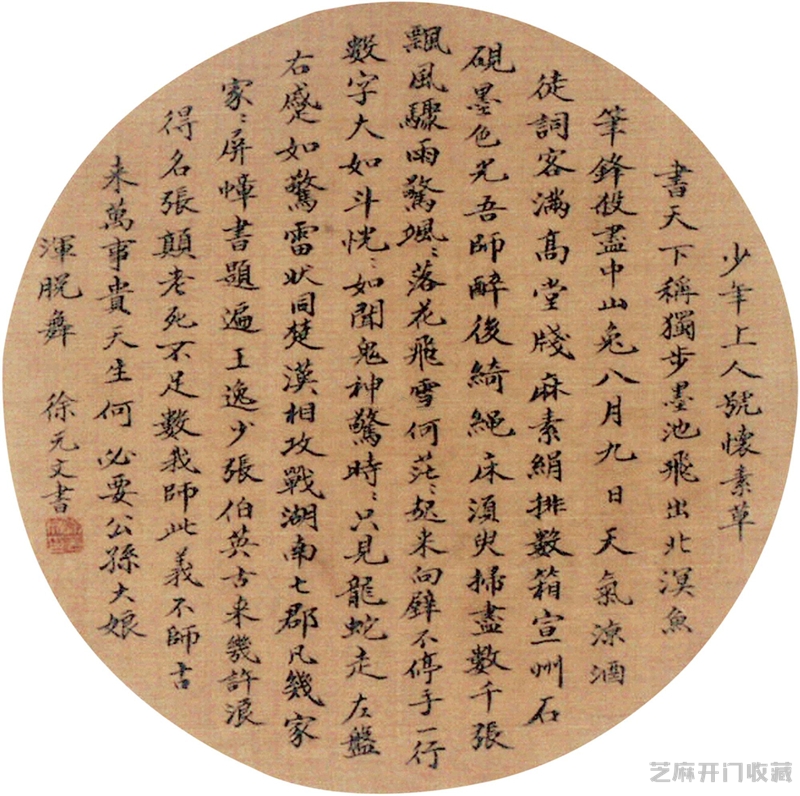 少年上人號懷素草
書天下稱獨步墨池飛出北溟魚
筆鋒殺盡中山兔八月九日天氣涼酒
徒詞客滿高堂牋麻素絹排數箱宣州石
硯墨色光吾師醉後綺繩床須臾掃盡數千張
飄風驟雨驚颯〻落花飛雪何茫〻起來向壁不停手一行
數字大如斗恍〻如聞鬼神驚時〻只見龍蛇走左盤
右蹙如驚雷狀同楚漢相攻戰湖南七郡凡幾家
家〻屏幛書題遍王逸少張伯英古來幾許浪
得名張顛老死不足數我師此義不師古
來萬事貴天生何必要公孫大娘
渾脫舞 徐元文書
芝麻开门收藏